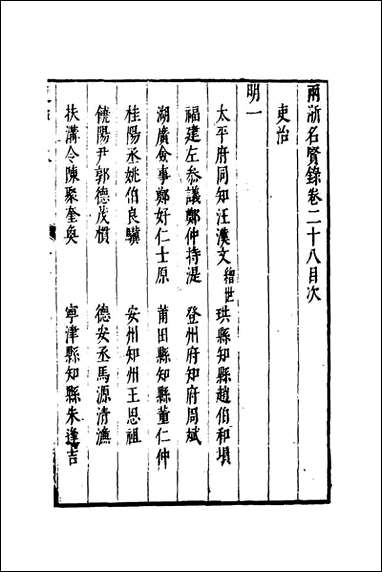 兩浙名賢錄卷二十八目次
吏治
明一
太平府同知汪漢文 稽世 珙縣知縣趙伯和塤
福建左叅議鄭仲持湜 登州府知府周斌
湖廣僉事鄭好仁士原 莆田縣知縣董仁仲
桂陽丞姚伯良驥 安州知州王思祖
饒陽尹郭德茂慣 德安丞馬源清瀌
扶溝令陳聚奎奐 寧津縣知縣朱逢吉